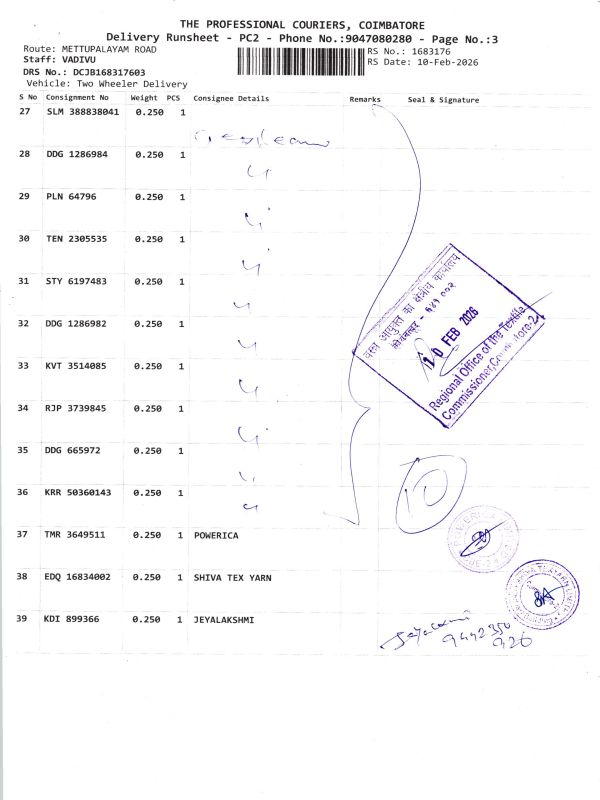 THE PROFESSIONAL COURIERS, COIMBATORE
Delivery Runsheet - PC2 - Phone No.:9047080280 - Page No.:3
Route: METTUPALAYAM ROAD
RS No.: 1683176
Staff: VADIVU
RS Date: 10-Feb-2026
DRS No.: DCJB168317603
Vehicle: Two Wheeler Delivery
S No Consignment No Weight PCS Consignee Details Remarks Seal & Signature
27 SLM 388838041 0.250 1
28 DDG 1286984 0.250 1
29 PLN 64796 0.250 1
30 TEN 2305535 0.250 1
31 STY 6197483 0.250 1
32 DDG 1286982 0.250 1
33 KVT 3514085 0.250 1
34 RJP 3739845 0.250 1
35 DDG 665972 0.250 1
36 KRR 50360143 0.250 1
वस्त्र आयुक्त का क्षेत्रीय कार्यालय
कोयम्बटूर - ६४१ ००२
10 FEB 2026
Regional Office of the Textile
Commissioner, Coimbatore-2
10
37 TMR 3649511 0.250 1 POWERICA
38 EDQ 16834002 0.250 1 SHIVA TEX YARN
39 KDI 899366 0.250 1 JEYALAKSHMI
9442350
926